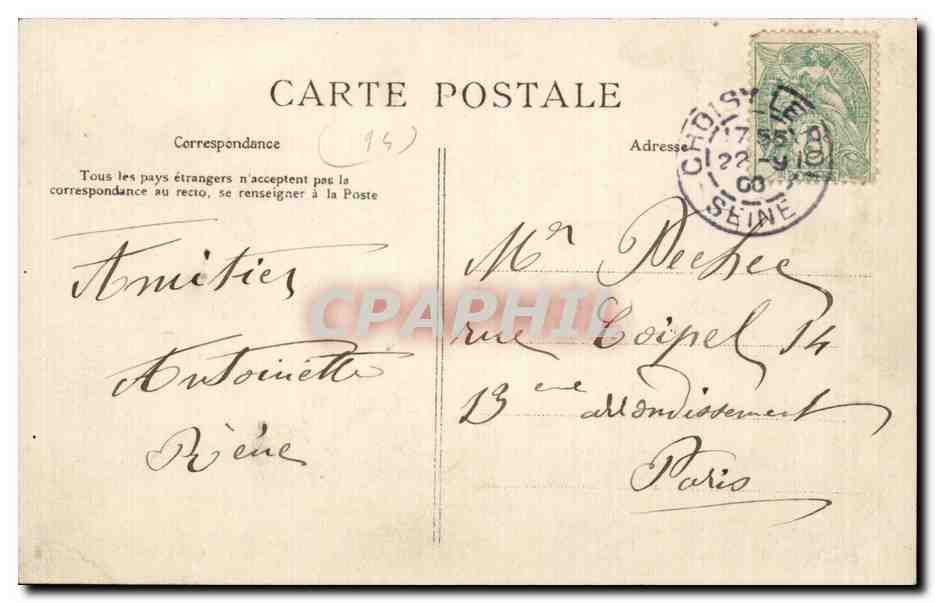 CARTE POSTALE
Correspondance
(94)
Adresse
Tous les pays étrangers n'acceptent pas la
correspondance au recto, se renseigner à la Poste
CHOISY LE
17 55
22
SEINE
Amitiés
Antoinette
Réné
Mr Pechec
rue Coipel 14
13eme arrondissement
Paris
CPAPHIL